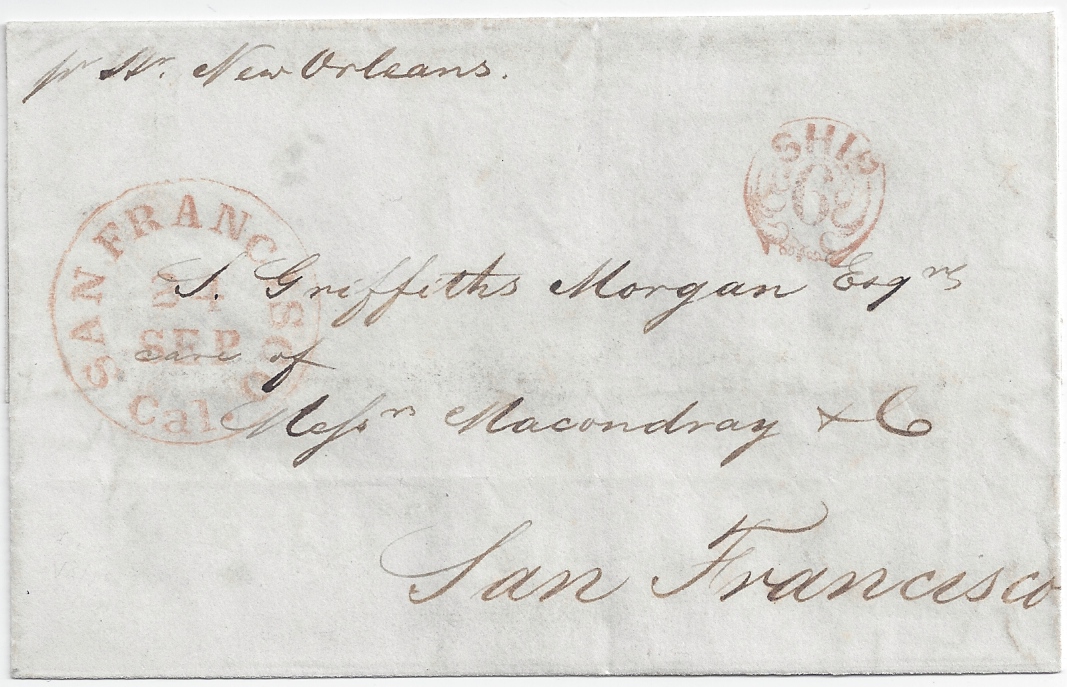 pr Str. New Orleans.
SHIP
6
SAN FRANCISCO
24
SEP
Cal.
S. Griffiths Morgan Esqre
care of
Messrs Macondray & Co
San Francisco